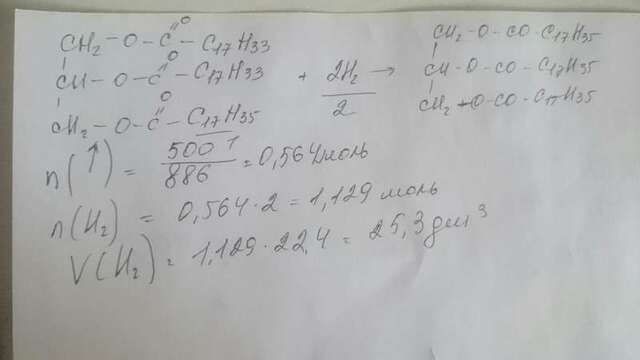 CH2 - O - C - C17H33 CH2 - O - CO - C17H35
O
CH - O - C - C17H33 + 2H2 → CH - O - CO - C17H35
O 2
CH2 - O - C - C17H35 CH2 - O - CO - C17H35
O
n(↑) = 500 г / 886 = 0,564 моль
n(H2) = 0,564 · 2 = 1,129 моль
V(H2) = 1,129 · 22,4 = 25,3 дм³